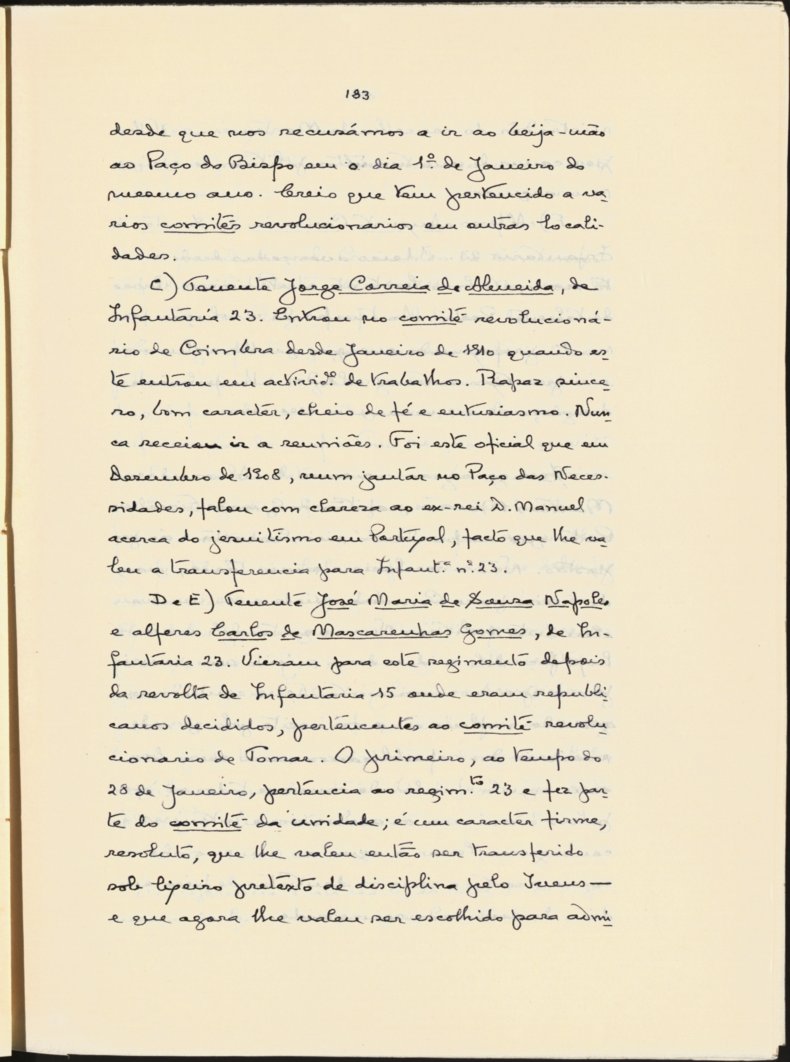 133
desde que nos recusámos a ir ao beija-mão
ao Paço do Bispo em o dia 1º. de Janeiro do
mesmo ano. Creio que tem pertencido a va-
rios comités revolucionarios em outras locali-
dades.
C) Tenente Jorge Correia de Almeida, de
Infantária 23. Entrou no comité revolucioná-
rio de Coimbra desde Janeiro de 1910 quando es-
te entrou em activid.º de trabalhos. Rapaz since-
ro, bom caractér, cheio de fé e entusiasmo. Nun-
ca receiou ir a reuniões. Foi este oficial que em
Dezembro de 1908, num jantár no Paço das Neces-
sidades, falou com clareza ao ex-rei D. Manuel
acerca do jesuitismo em Portugal, facto que lhe va-
leu a transferencia para Infant.ª nº. 23.
D e E) Tenente José Maria de Souza Napoles
e alferes Carlos de Mascarenhas Gomes, de In-
fantária 23. Vieram para este regimento depois
da revolta de Infantaria 15 onde eram republi-
canos decididos, pertencentes ao comité revolu-
cionario de Tomar. O primeiro, ao tempo do
28 de Janeiro, pertencia ao regim.to 23 e fez par-
te do comité da unidade; é um caractér firme,
resoluto, que lhe valeu então ser transferido
sob ligeiro pretexto de disciplina pelo
e que agora lhe valeu ser escolhido para admi-